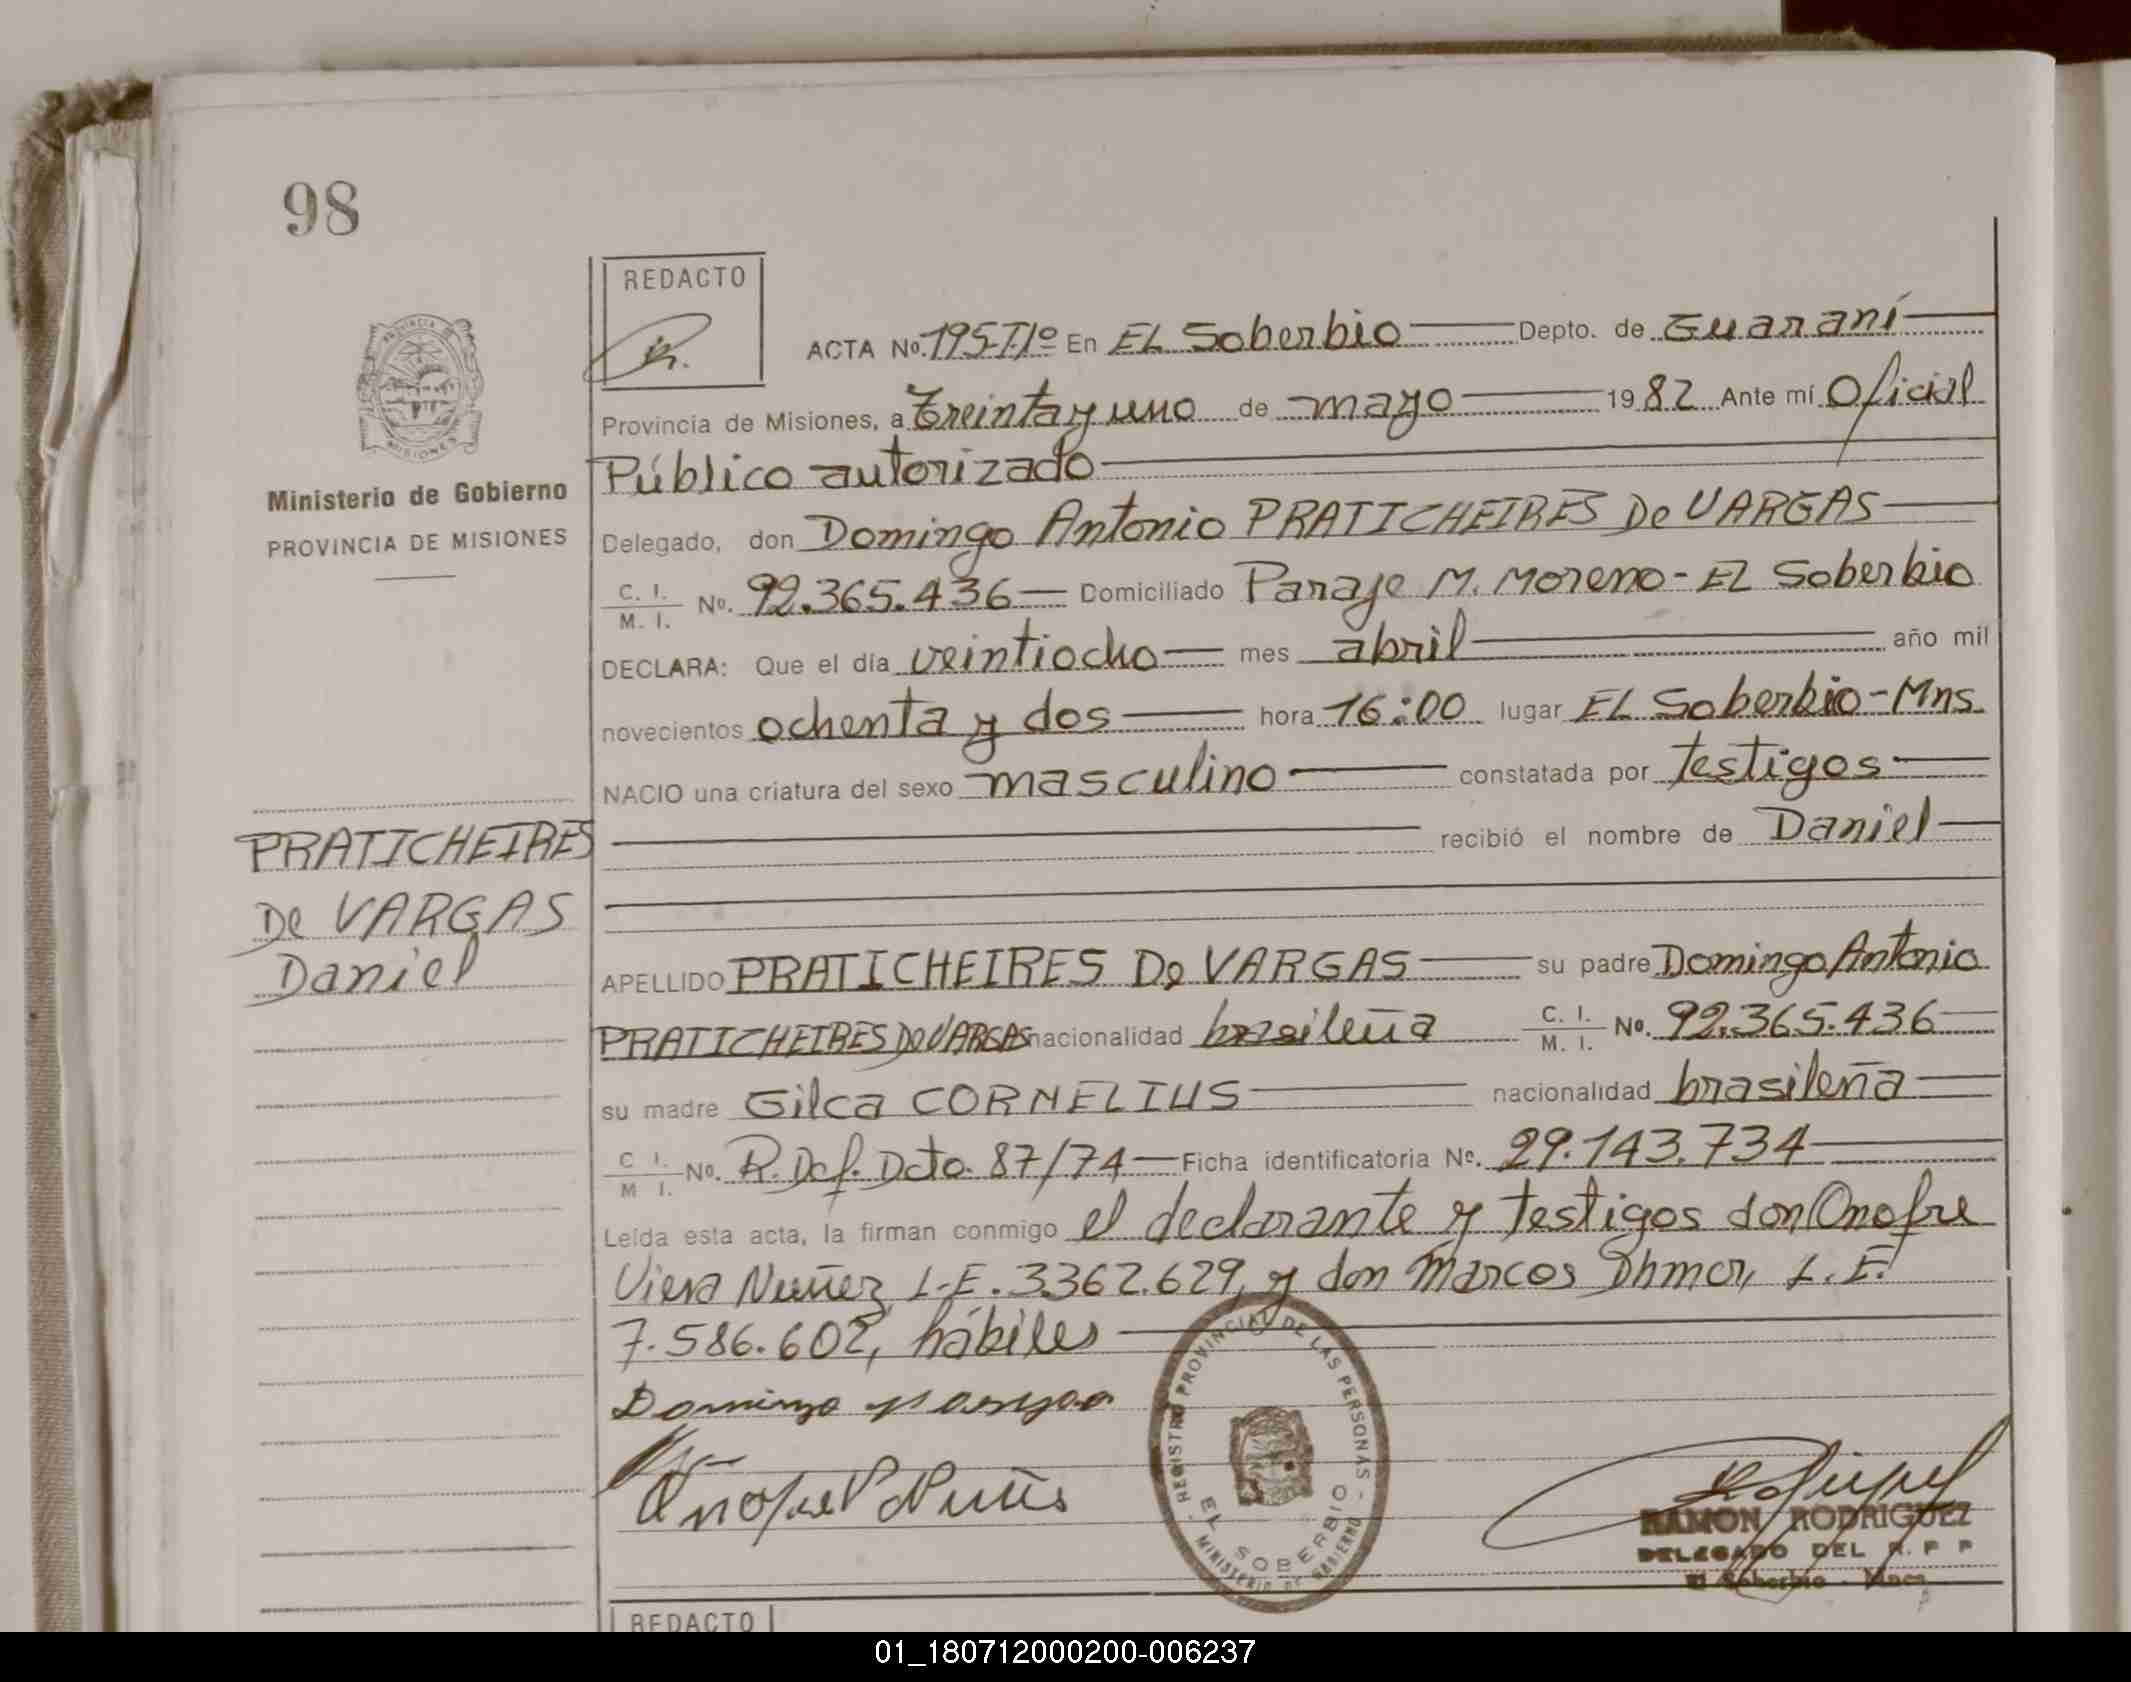 98
REDACTO
ACTA No. 195-Tº1º En EL Soberbio Depto. de Guaraní
Provincia de Misiones, a Treinta y uno de mayo 1982 Ante mí Oficial
Público autorizado
Ministerio de Gobierno
PROVINCIA DE MISIONES
Delegado, don Domingo Antonio PRATICHEIRES De VARGAS
C. I. / M. I. No. 92.365.436 Domiciliado Paraje M. Moreno - EL Soberbio
DECLARA: Que el día veintiocho mes abril año mil
novecientos ochenta y dos hora 16:00 lugar EL Soberbio - Mns
NACIO una criatura del sexo masculino constatada por testigos
recibió el nombre de Daniel
PRATICHEIRES
De VARGAS
Daniel
APELLIDO PRATICHEIRES De VARGAS su padre Domingo Antonio
PRATICHEIRES De VARGAS nacionalidad brasileña C. I. / M. I. No. 92.365.436
su madre Gilca CORNELIUS nacionalidad brasileña
C I. / M I. No. R. Def. Dcto. 87/74 Ficha identificatoria No. 29.143.734
Leída esta acta, la firman conmigo el declarante y testigos don Onofre
Viera Nuñez L.E. 3362.629, y don Marcos Dhmer, L.E.
7.586.602, hábiles
Domingo Vargas
Onofre V Nuñes
REGISTRO PROVINCIAL DE LAS PERSONAS -
EL SOBERBIO
- MINISTERIO DE GOBIERNO
RAMON RODRIGUEZ
DELEGADO DEL R. P P
El Soberbio - Mnes
REDACTO
01_180712000200-006237